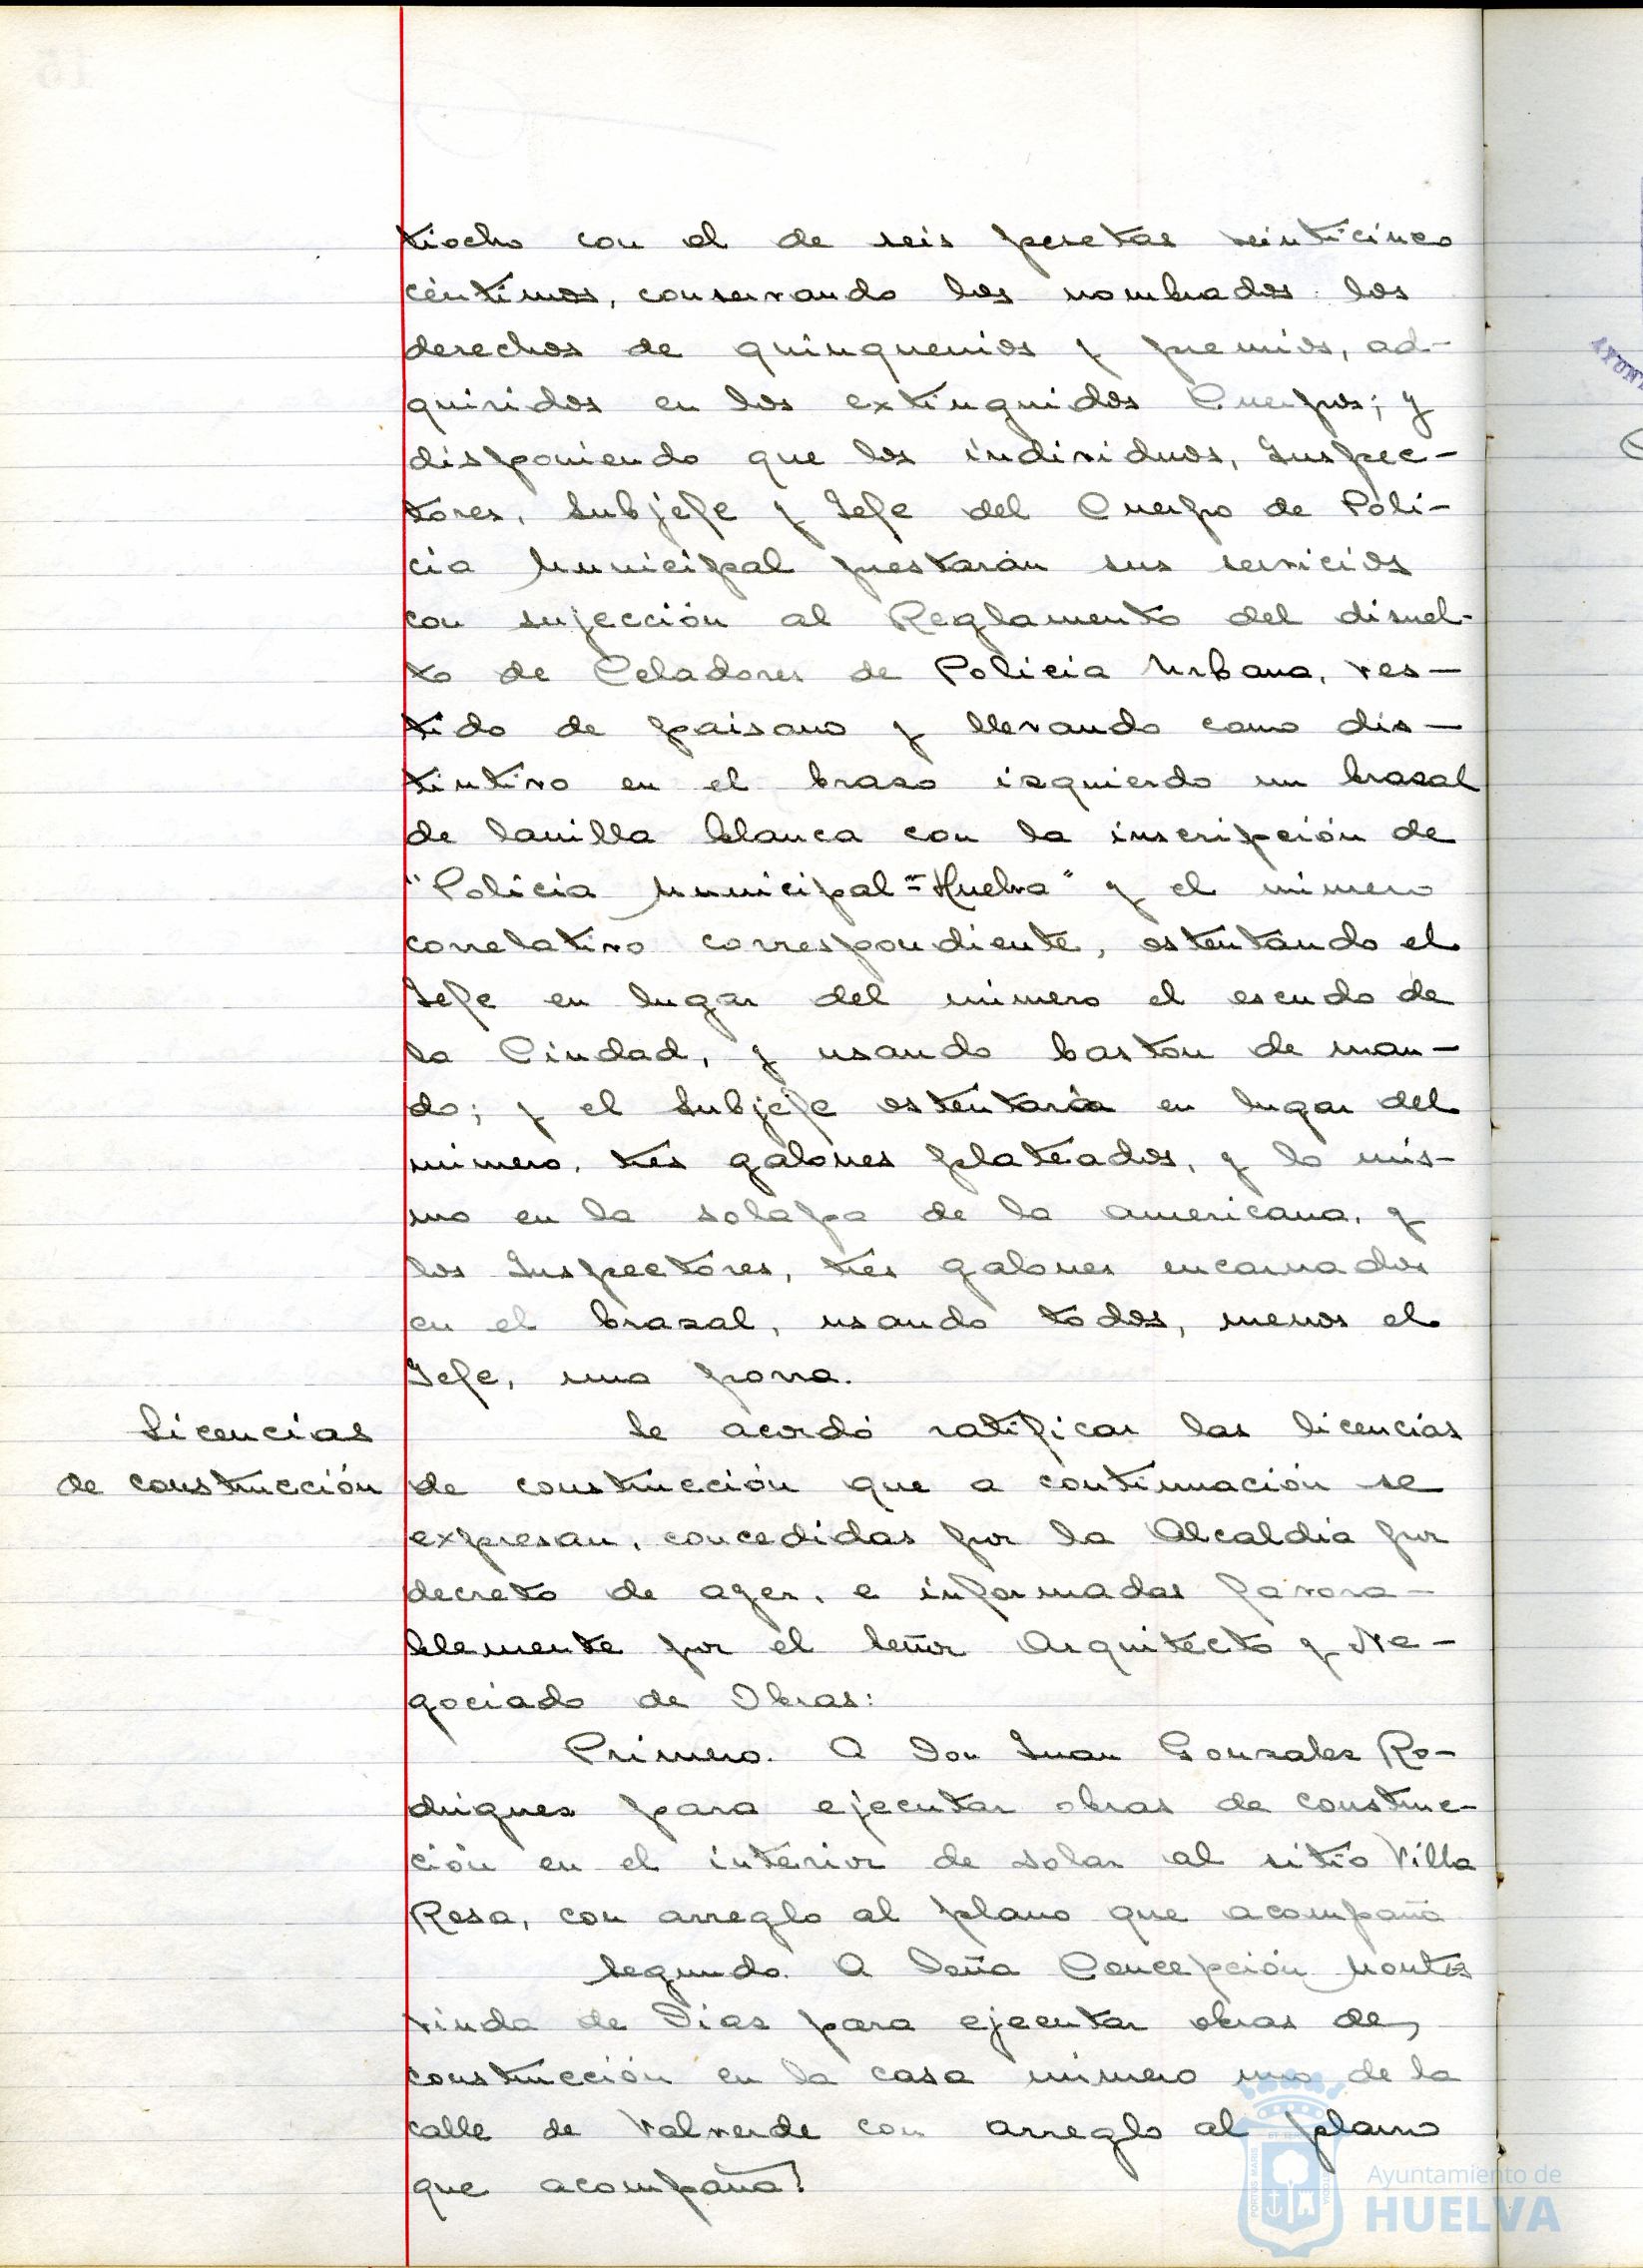 tiocho con el de seis pesetas veinticinco
céntimos, conservando los nombrados los
derechos de quinquenios y premios, ad-
quiridos en los extinguidos Cuerpos; y
disponiendo que los individuos, Inspec-
tores, Subjefe y Jefe del Cuerpo de Poli-
cia Municipal prestarán sus servicios
con sujección al Reglamento del disuel-
to de Celadores de Policia Urbana, ves-
tido de paisano y llevando como dis-
tintivo en el brazo izquierdo un brazal
de lanilla blanca con la inscripción de
"Policia Municipal=Huelva" y el número
correlativo correspondiente, ostentando el
Jefe en lugar del número el escudo de
la Ciudad, y usando baston de man-
do; y el Subjefe ostentará en lugar del
número, tres galones plateados, y lo mis-
mo en la solapa de la americana, y
los Inspectores, tres galones encarnados
en el brazal, usando todos, menos el
Jefe, una porra.
Licencias
de construcción
Se acordó ratificar las licencias
de construcción que a continuación se
expresan, concedidas por la Alcaldia por
decreto de ayer, e informadas favora-
blemente por el Señor Arquitecto y Ne-
gociado de Obras:
Primero. A Don Juan Gonzalez Ro-
driguez para ejecutar obras de construc-
ción en el interior de solar al sitio Villa
Rosa, con arreglo al plano que acompaña
Segundo. A Doña Concepción Montes
viuda de Diaz para ejecutar obras de
construcción en la casa número uno de la
calle de Valverde con arreglo al plano
que acompaña.
Ayuntamiento de
HUELVA